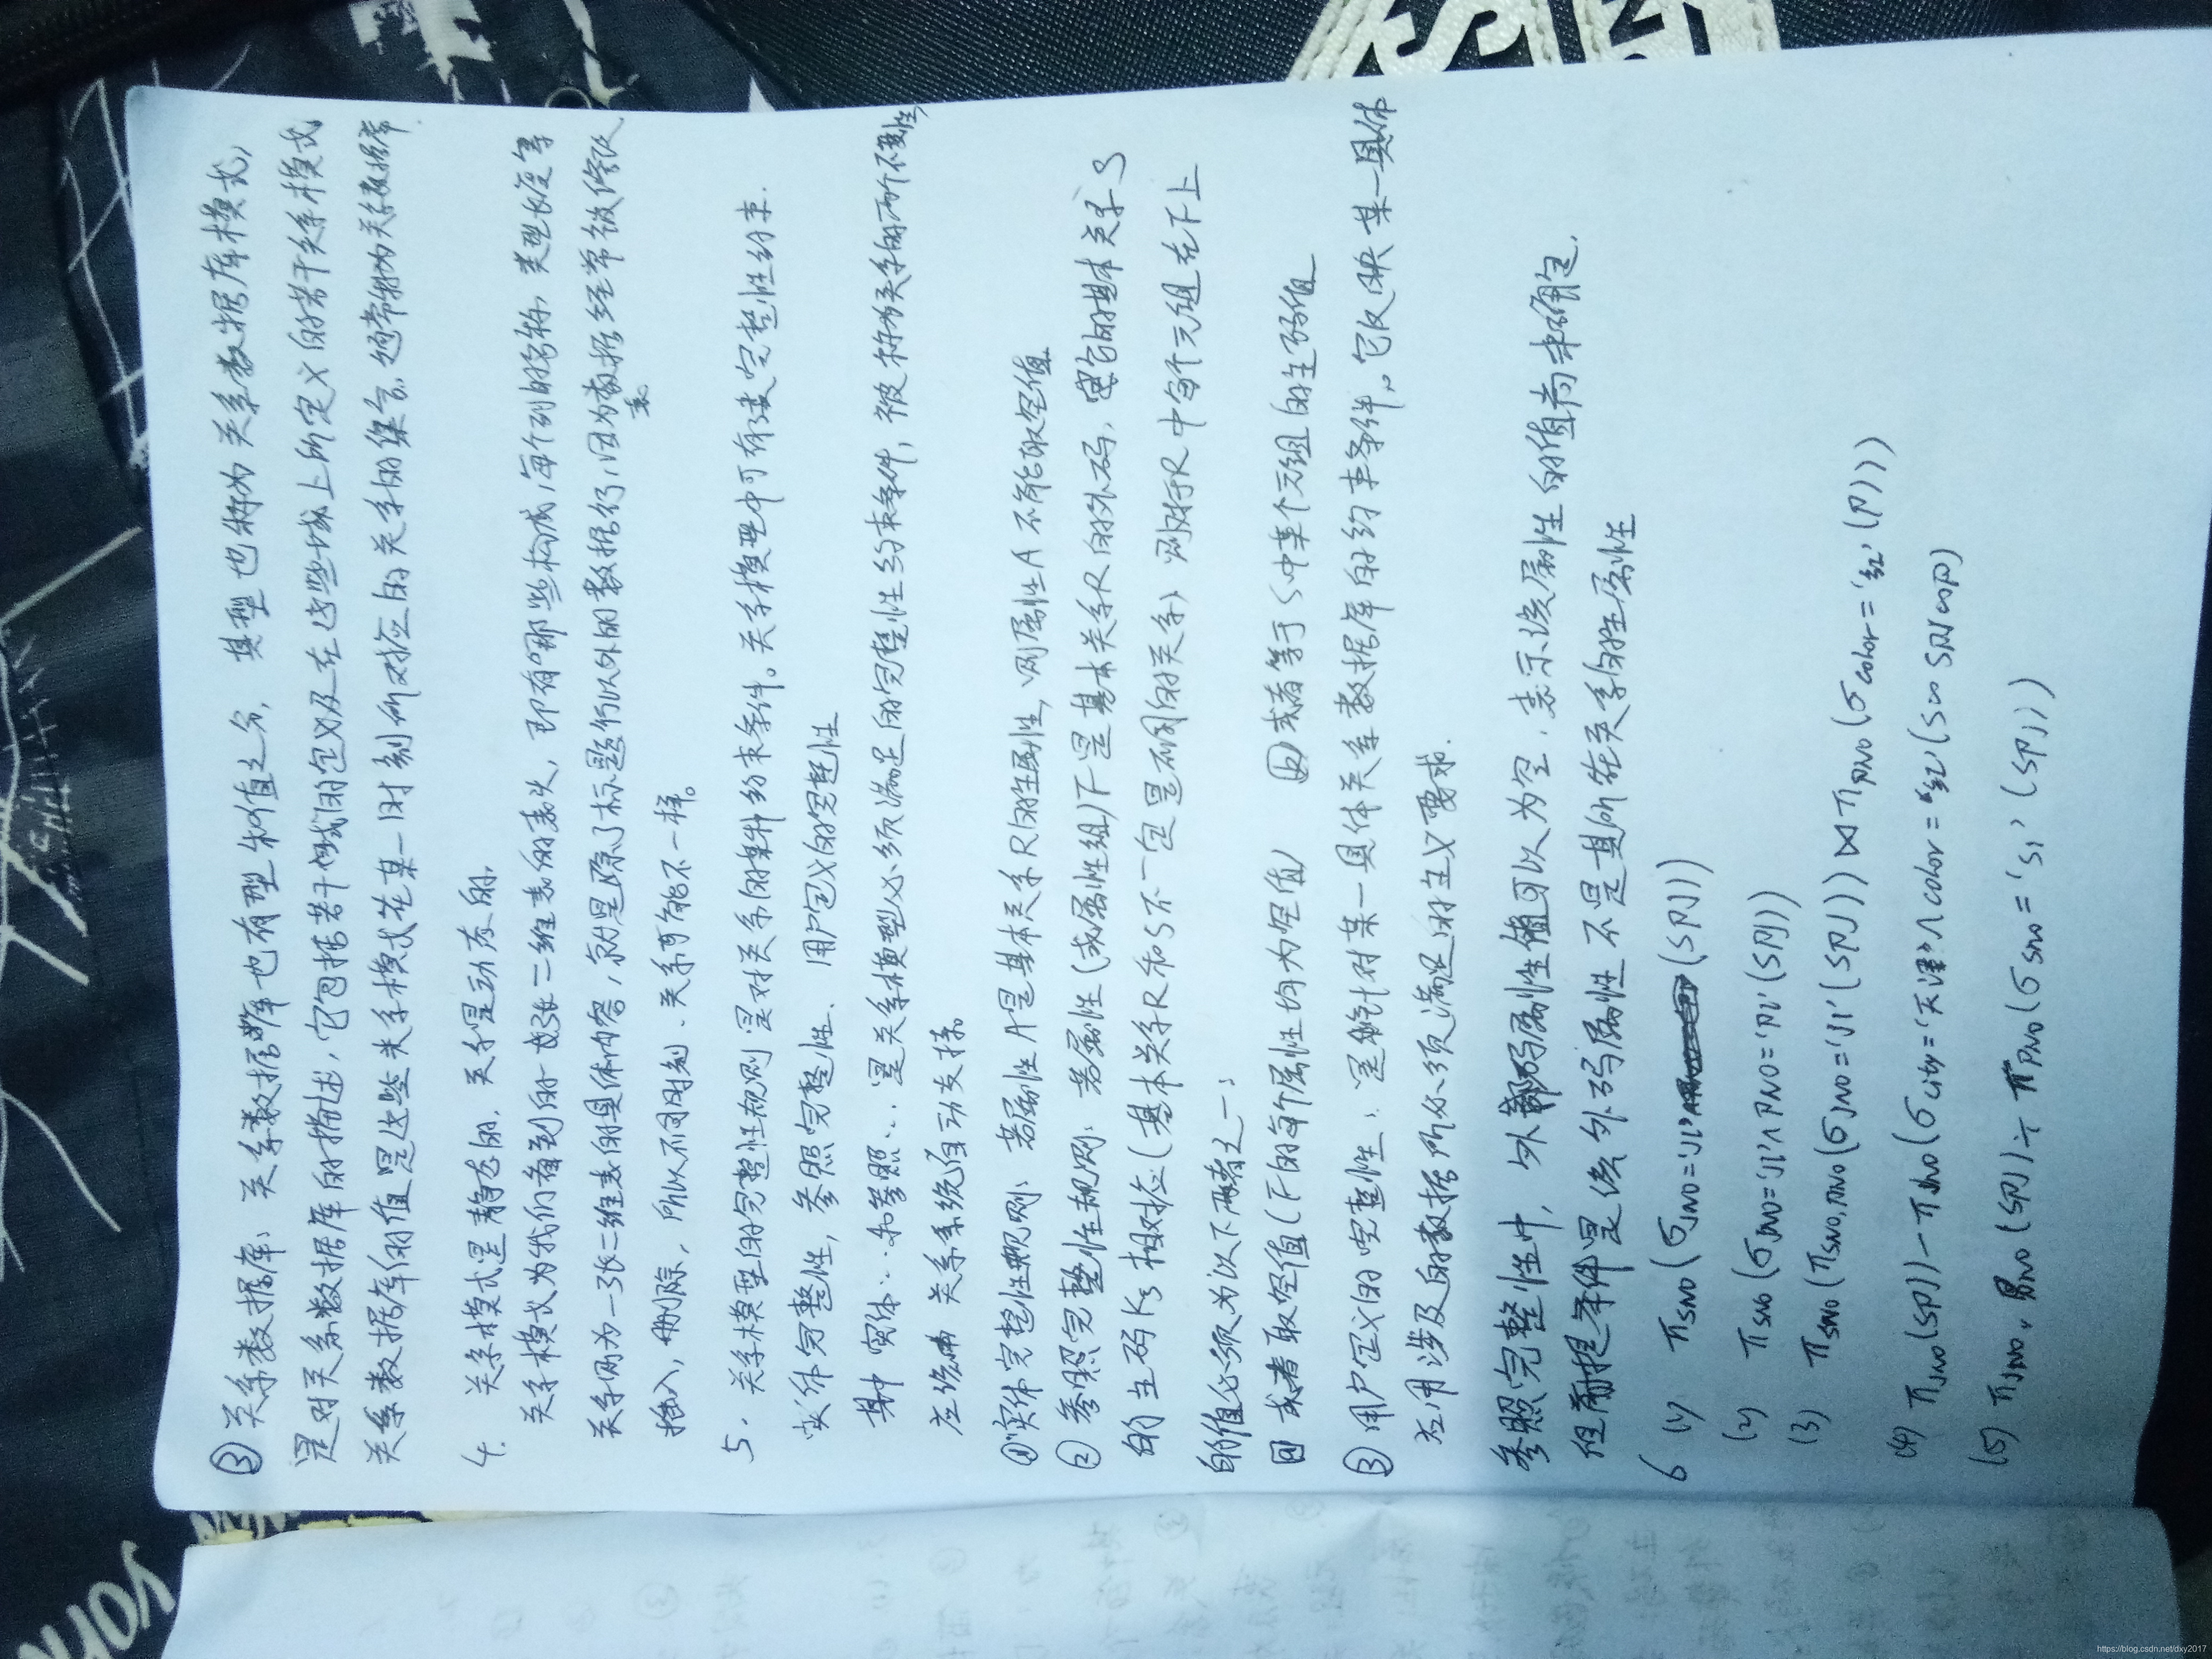 ③ 关系数据库：关系数据库也有型和值之分，其型也称为关系数据库模式，
是对关系数据库的描述，它包括若干域的定义及在这些域上所定义的若干关系模式
关系数据库的值是这些关系模式在某一时刻所对应的关系的集合，通常称为关系数据库.
4. 关系模式是静态的，关系是动态的.
关系模式为我们看到的一张二维表的表头，即有哪些构成，每个列的名称，类型长度等
关系两为一张二维表的具体内容，就是除了标题行以外的数据行，因为表数据经常被修改
插入，删除，所以不同时刻，关系可能不一样。
5. 关系模型的完整性规则是对关系的某种约束条件。关系模型中可有三类完整性约束.
实体完整性，参照完整性，用户定义的完整性
其中实体...和参照...是关系模型必须满足的完整性约束条件，被称为关系的两个不变性，
应当由关系系统自动支持。
① 实体完整性规则：若属性A是基本关系R的主属性，则属性A不能取空值
② 参照完整性规则：若属性（或属性组）F是基本关系R的外码，它与基本关系S
的主码Ks相对应（基本关系R和S不一定是不同的关系）则对于R中每个元组在F上
的值必须为以下两者之一：
或者取空值（F的每个属性均为空值） 或者等于S中某个元组的主码值
③ 用户定义的完整性：是针对某一具体关系数据库的约束条件。它反映某一具体
应用涉及的数据所必须满足的语义要求.
参照完整性中，外码属性值可以为空，表示该属性的值尚未确定.
但前提条件是该外码属性不是其所在关系的主属性
6 (1) πSNO(σJNO='J1'(SPJ))
(2) πSNO(σJNO='J1'∧PNO='P1'(SPJ))
(3) πSNO(πSNO,PNO(σJNO='J1'(SPJ))⋈πPNO(σcolor='红'(P)))
(4) πJNO(SPJ)-πJNO(σcity='天津'∧color='红'(S∞SPJ∞P))
(5) πJNO,PNO(SPJ)÷πPNO(σSNO='S1'(SPJ))
https://blog.csdn.net/dxy2017